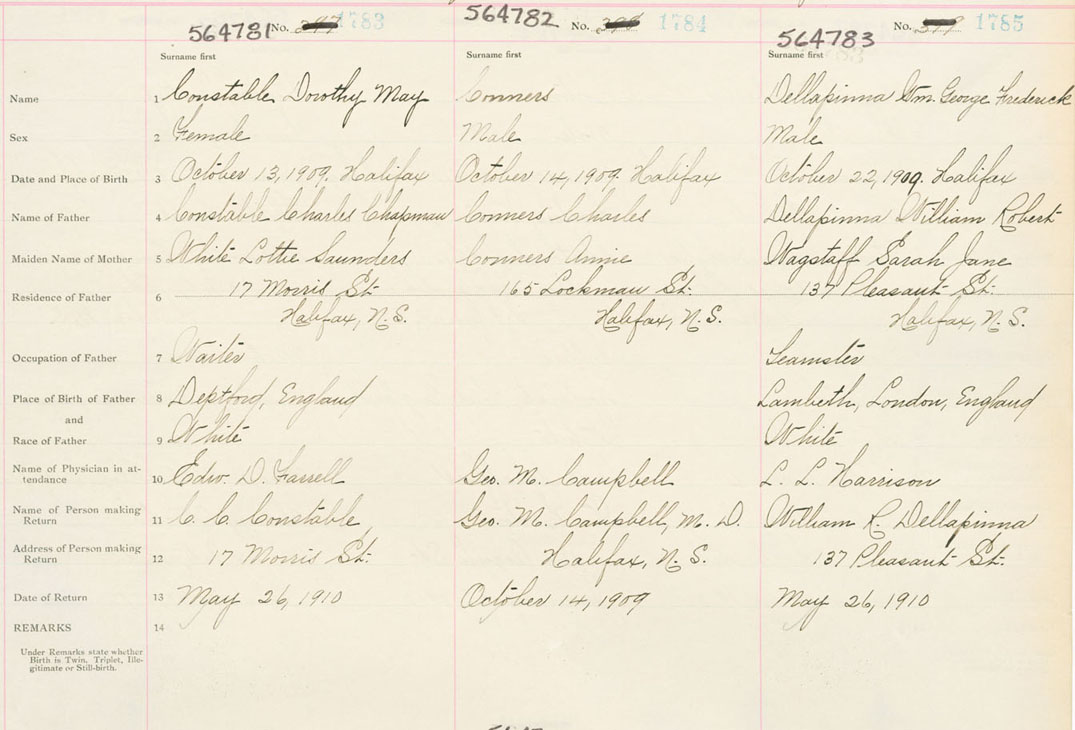 564781 No. 1783 564782 No. 1784 564783 No. 1785
Surname first Surname first Surname first
Name 1 Constable Dorothy May Conners Dellapinna Wm. George Frederick
Sex 2 Female Male Male
Date and Place of Birth 3 October 13, 1909. Halifax October 14, 1909. Halifax October 22, 1909. Halifax
Name of Father 4 Constable Charles Chapman Conners Charles Dellapinna William Robert
Maiden Name of Mother 5 White Lottie Saunders Conners Annie Wagstaff Sarah Jane
Residence of Father 6 17 Morris St. 165 Lockman St. 137 Pleasant St.
Halifax, N.S. Halifax, N.S. Halifax, N.S.
Occupation of Father 7 Waiter Teamster
Place of Birth of Father 8 Deptford, England Lambeth, London, England
and
Race of Father 9 White White
Name of Physician in at-
tendance 10 Edw. D. Farrell Geo. M. Campbell L. L. Harrison
Name of Person making
Return 11 C. C. Constable Geo. M. Campbell, M. D. William R. Dellapinna
Address of Person making
Return 12 17 Morris St. Halifax, N.S. 137 Pleasant St.
Date of Return 13 May 26, 1910 October 14, 1909 May 26, 1910
REMARKS 14
Under Remarks state whether
Birth is Twin, Triplet, Ille-
gitimate or Still-birth.